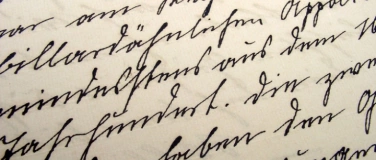 war am
billardähnlichen Appa
mindestens aus dem 16
Jahrhundert. Die zwe
haben den